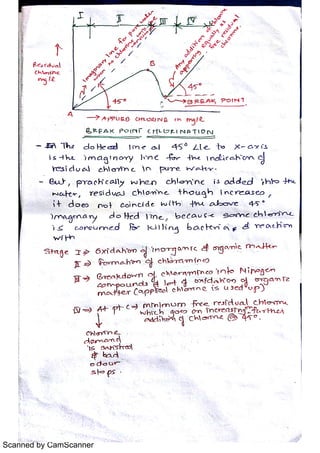 I II III IV
Imaginary line for pure water
no chlorine
Any addition chlorine
appearing equally as
free residual
chlorine.
Residual
chlorine
mg/l
B
45°
45°
C
→ BREAK POINT
A
→ APPLIED CHLORINE in mg/l
BREAK POINT CHLORINATION
- The dotted line at 45° ∠le to x-axis
is the imaginary line for the indication of
residual chlorine in pure water.
- But, practically when chlorine is added into the
water, residual chlorine though increases,
it does not coincide with the above 45°
imaginary dotted line, because some chlorine
is consumed for killing bacteria, & reaction
with
Stage I ⇒ Oxidation of inorganic & organic matter
II ⇒ Formation of chloramines
III ⇒ Breakdown of chloramines into Nitrogen
compounds & last of oxidation of organic
matter (applied chlorine is used up)
IV ⇒ At pt. C → minimum free residual chlorine
which goes on increasing further
addition of chlorine @ 45°.
Chlorine
demand
is satisfied
& bad
odour
stops.
Scanned by CamScanner